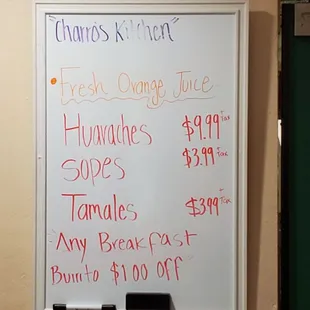 "Charro's Kitchen"
Fresh Orange Juice
Huaraches $9.99 + Tax
Sopes $3.99 + Tax
Tamales $3.99 + Tax
Any Breakfast
Burrito $1.00 Off